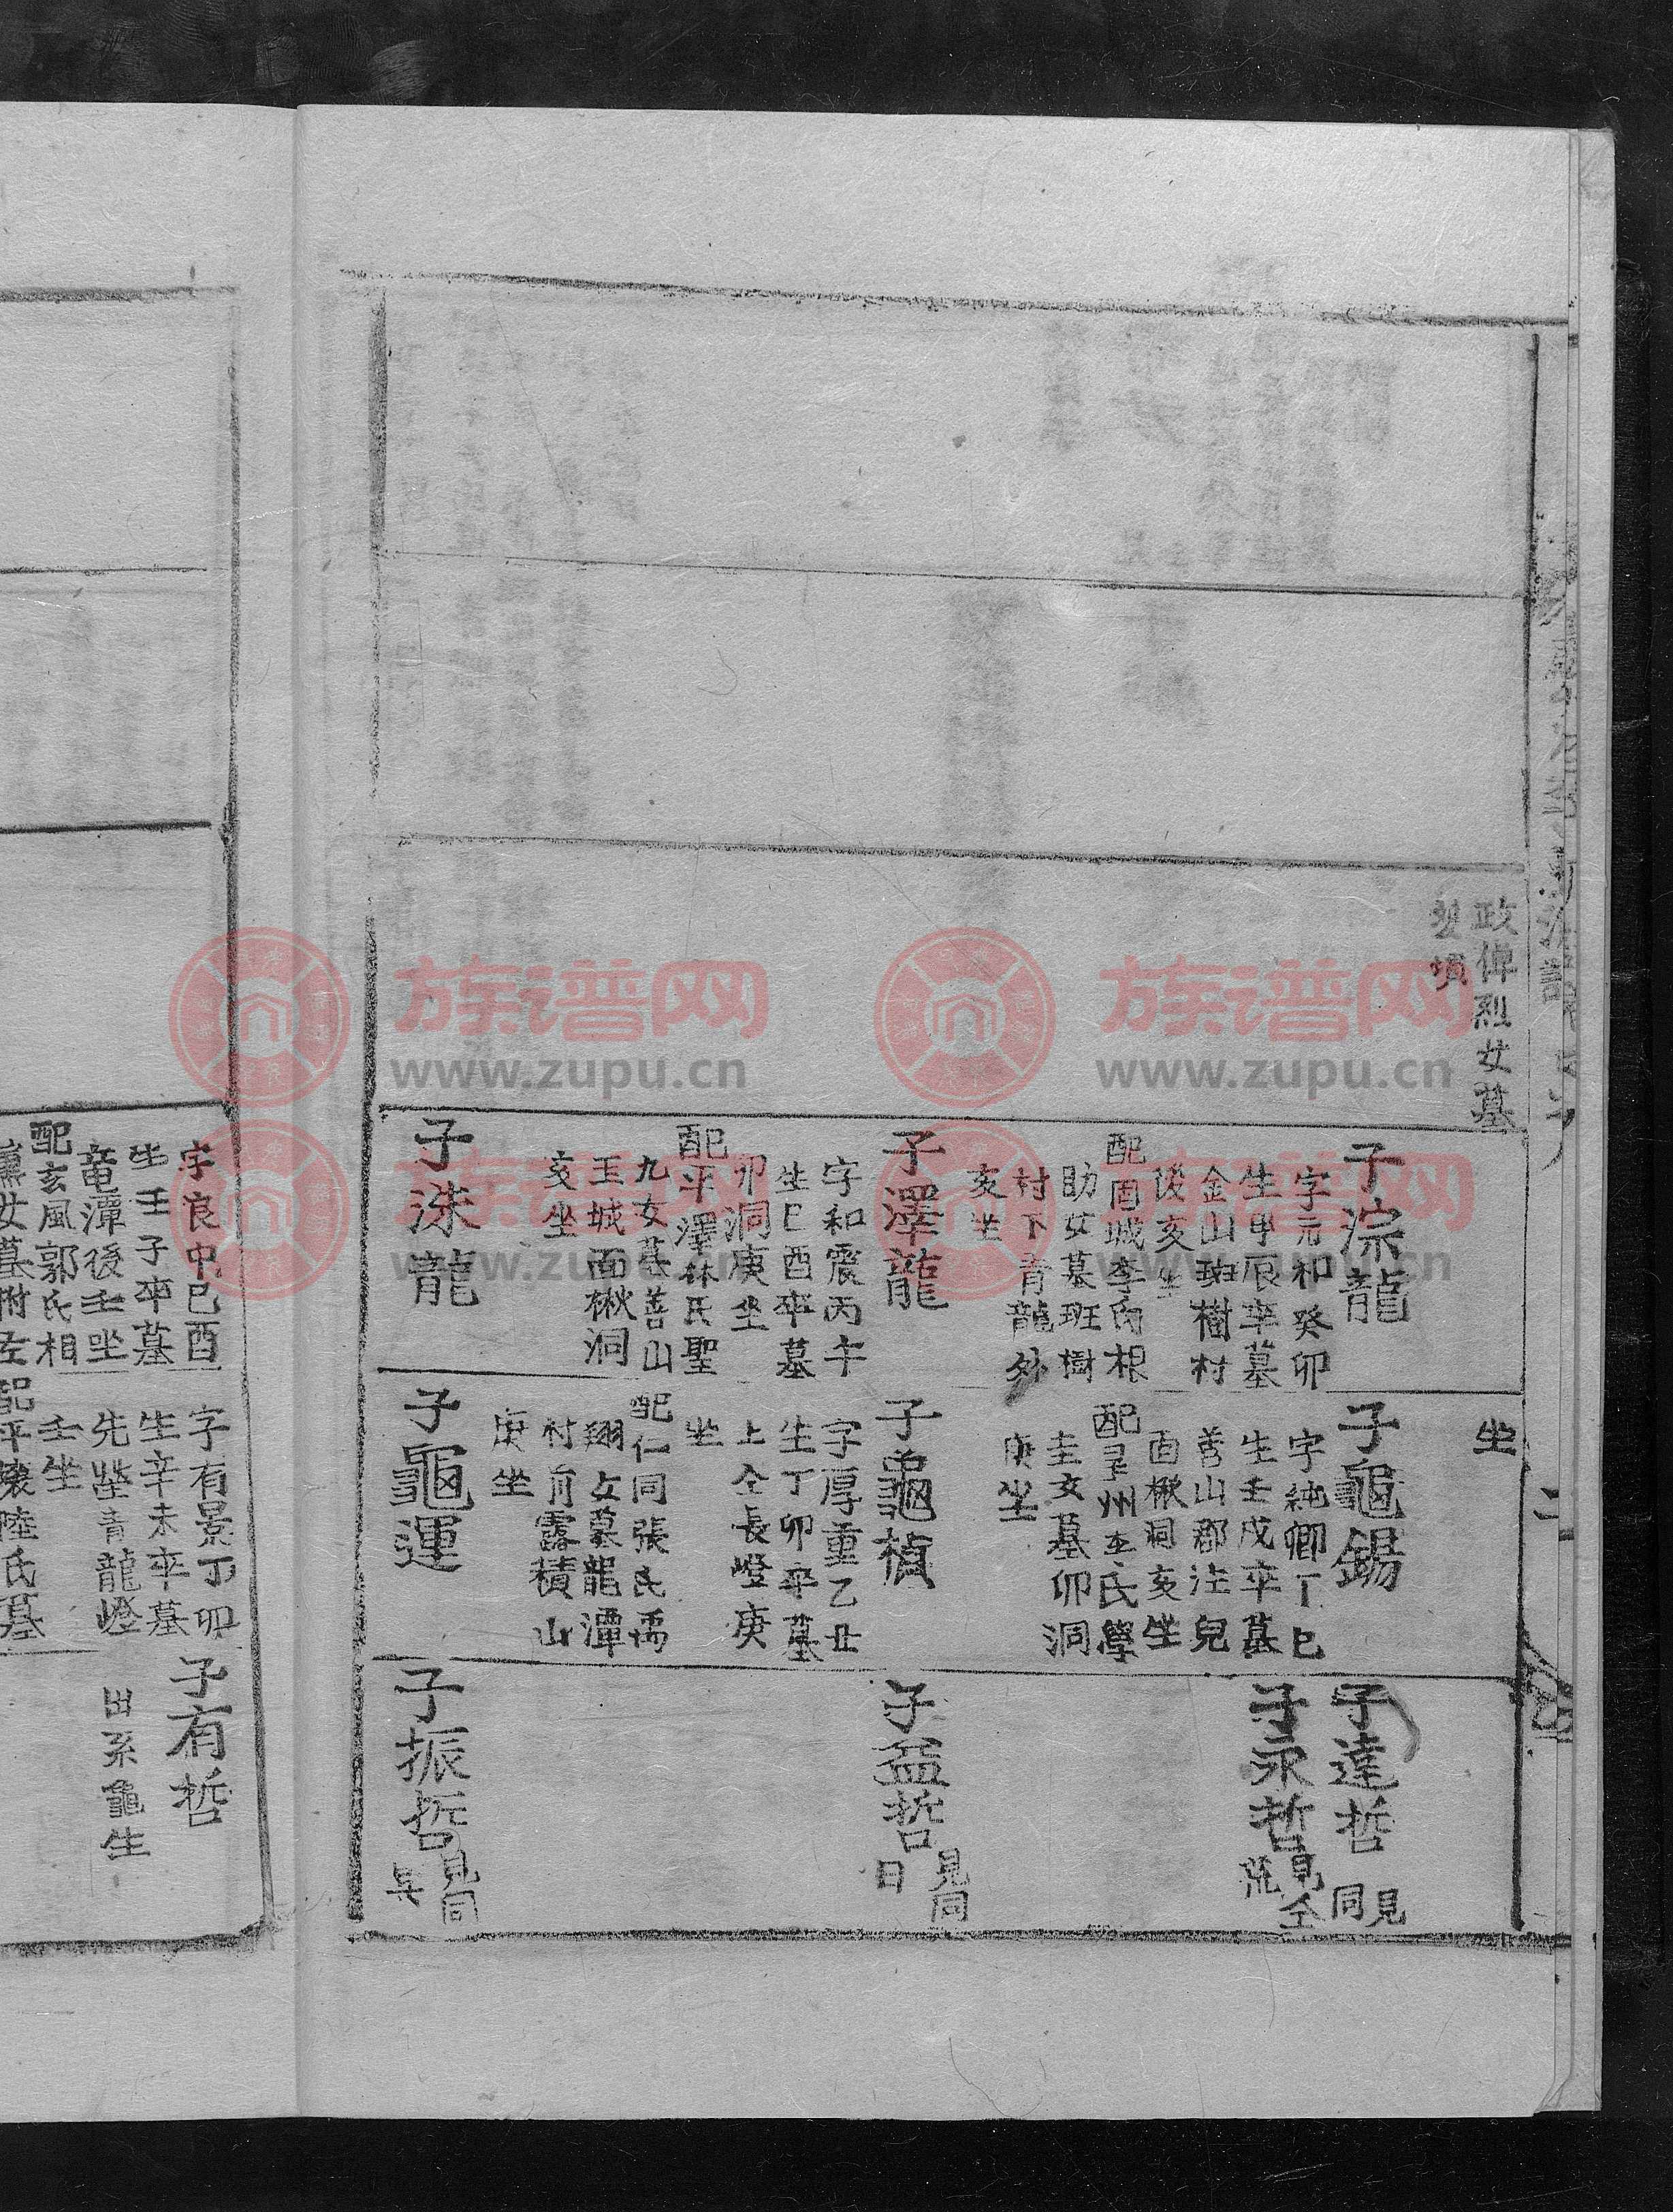 政俾烈女墓
墳
子淙龍
字元和癸卯
生甲辰卒墓
金山班樹村
後亥坐
配固城李氏根
助女墓班樹
村下青龍外
亥坐
子澤龍
字和震丙午
生己酉卒墓
卯洞庚坐
配平澤林氏聖
九女墓善山
王城面楸洞
亥坐
子洙龍
坐
子龜錫
字純卿丁巳
生壬戌卒墓
善山郡注兒
面楸洞亥坐
州李氏學
圭女墓卯洞
庚坐
子龜楨
字厚重乙丑
生丁卯卒墓
上仝長嶝庚
坐
配仁同張氏禹
翔女墓龍潭
村前露積山
庚坐
子龜運
子達哲
見同
子永哲
見仝
子益哲
見同
日
子振哲
見同
字良中己酉
生壬子卒墓
竜潭後壬坐
配玄風郭氏相
薰女墓附左
字有景丁卯
生辛未卒墓
先塋青龍嶝
壬坐
配平壤陸氏墓
子有哲
出系龜生
族谱网
www.zupu.cn
族谱网
www.zupu.cn
族谱网
www.zupu.cn
族谱网
www.zupu.cn